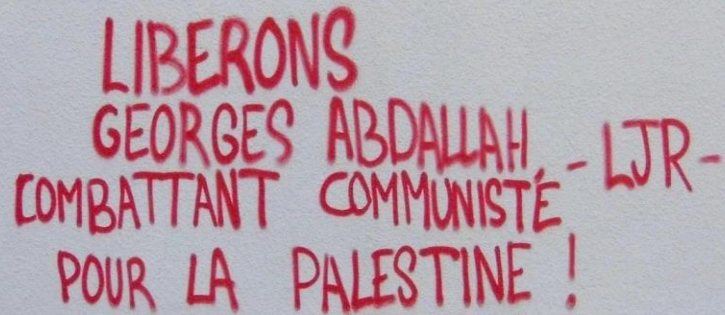 LIBERONS
GEORGES ABDALLAH
COMBATTANT COMMUNISTÉ - LJR -
POUR LA PALESTINE !